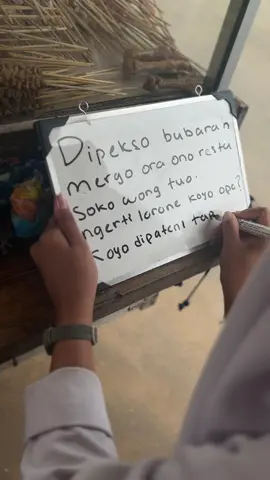 Dipekso bubaran
mergo ora ono restu
Soko wong tuo.
ngerti larane koyo opo?
Koyo dipateni tap